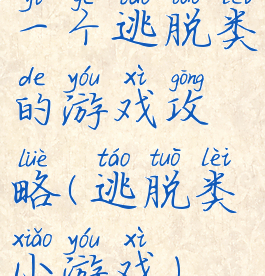 yī gè táo tuō lèi
一个逃脱类
de yóu xì gōng
的游戏攻
lüè táo tuō lèi
略(逃脱类
xiǎo yóu xì
小游戏)